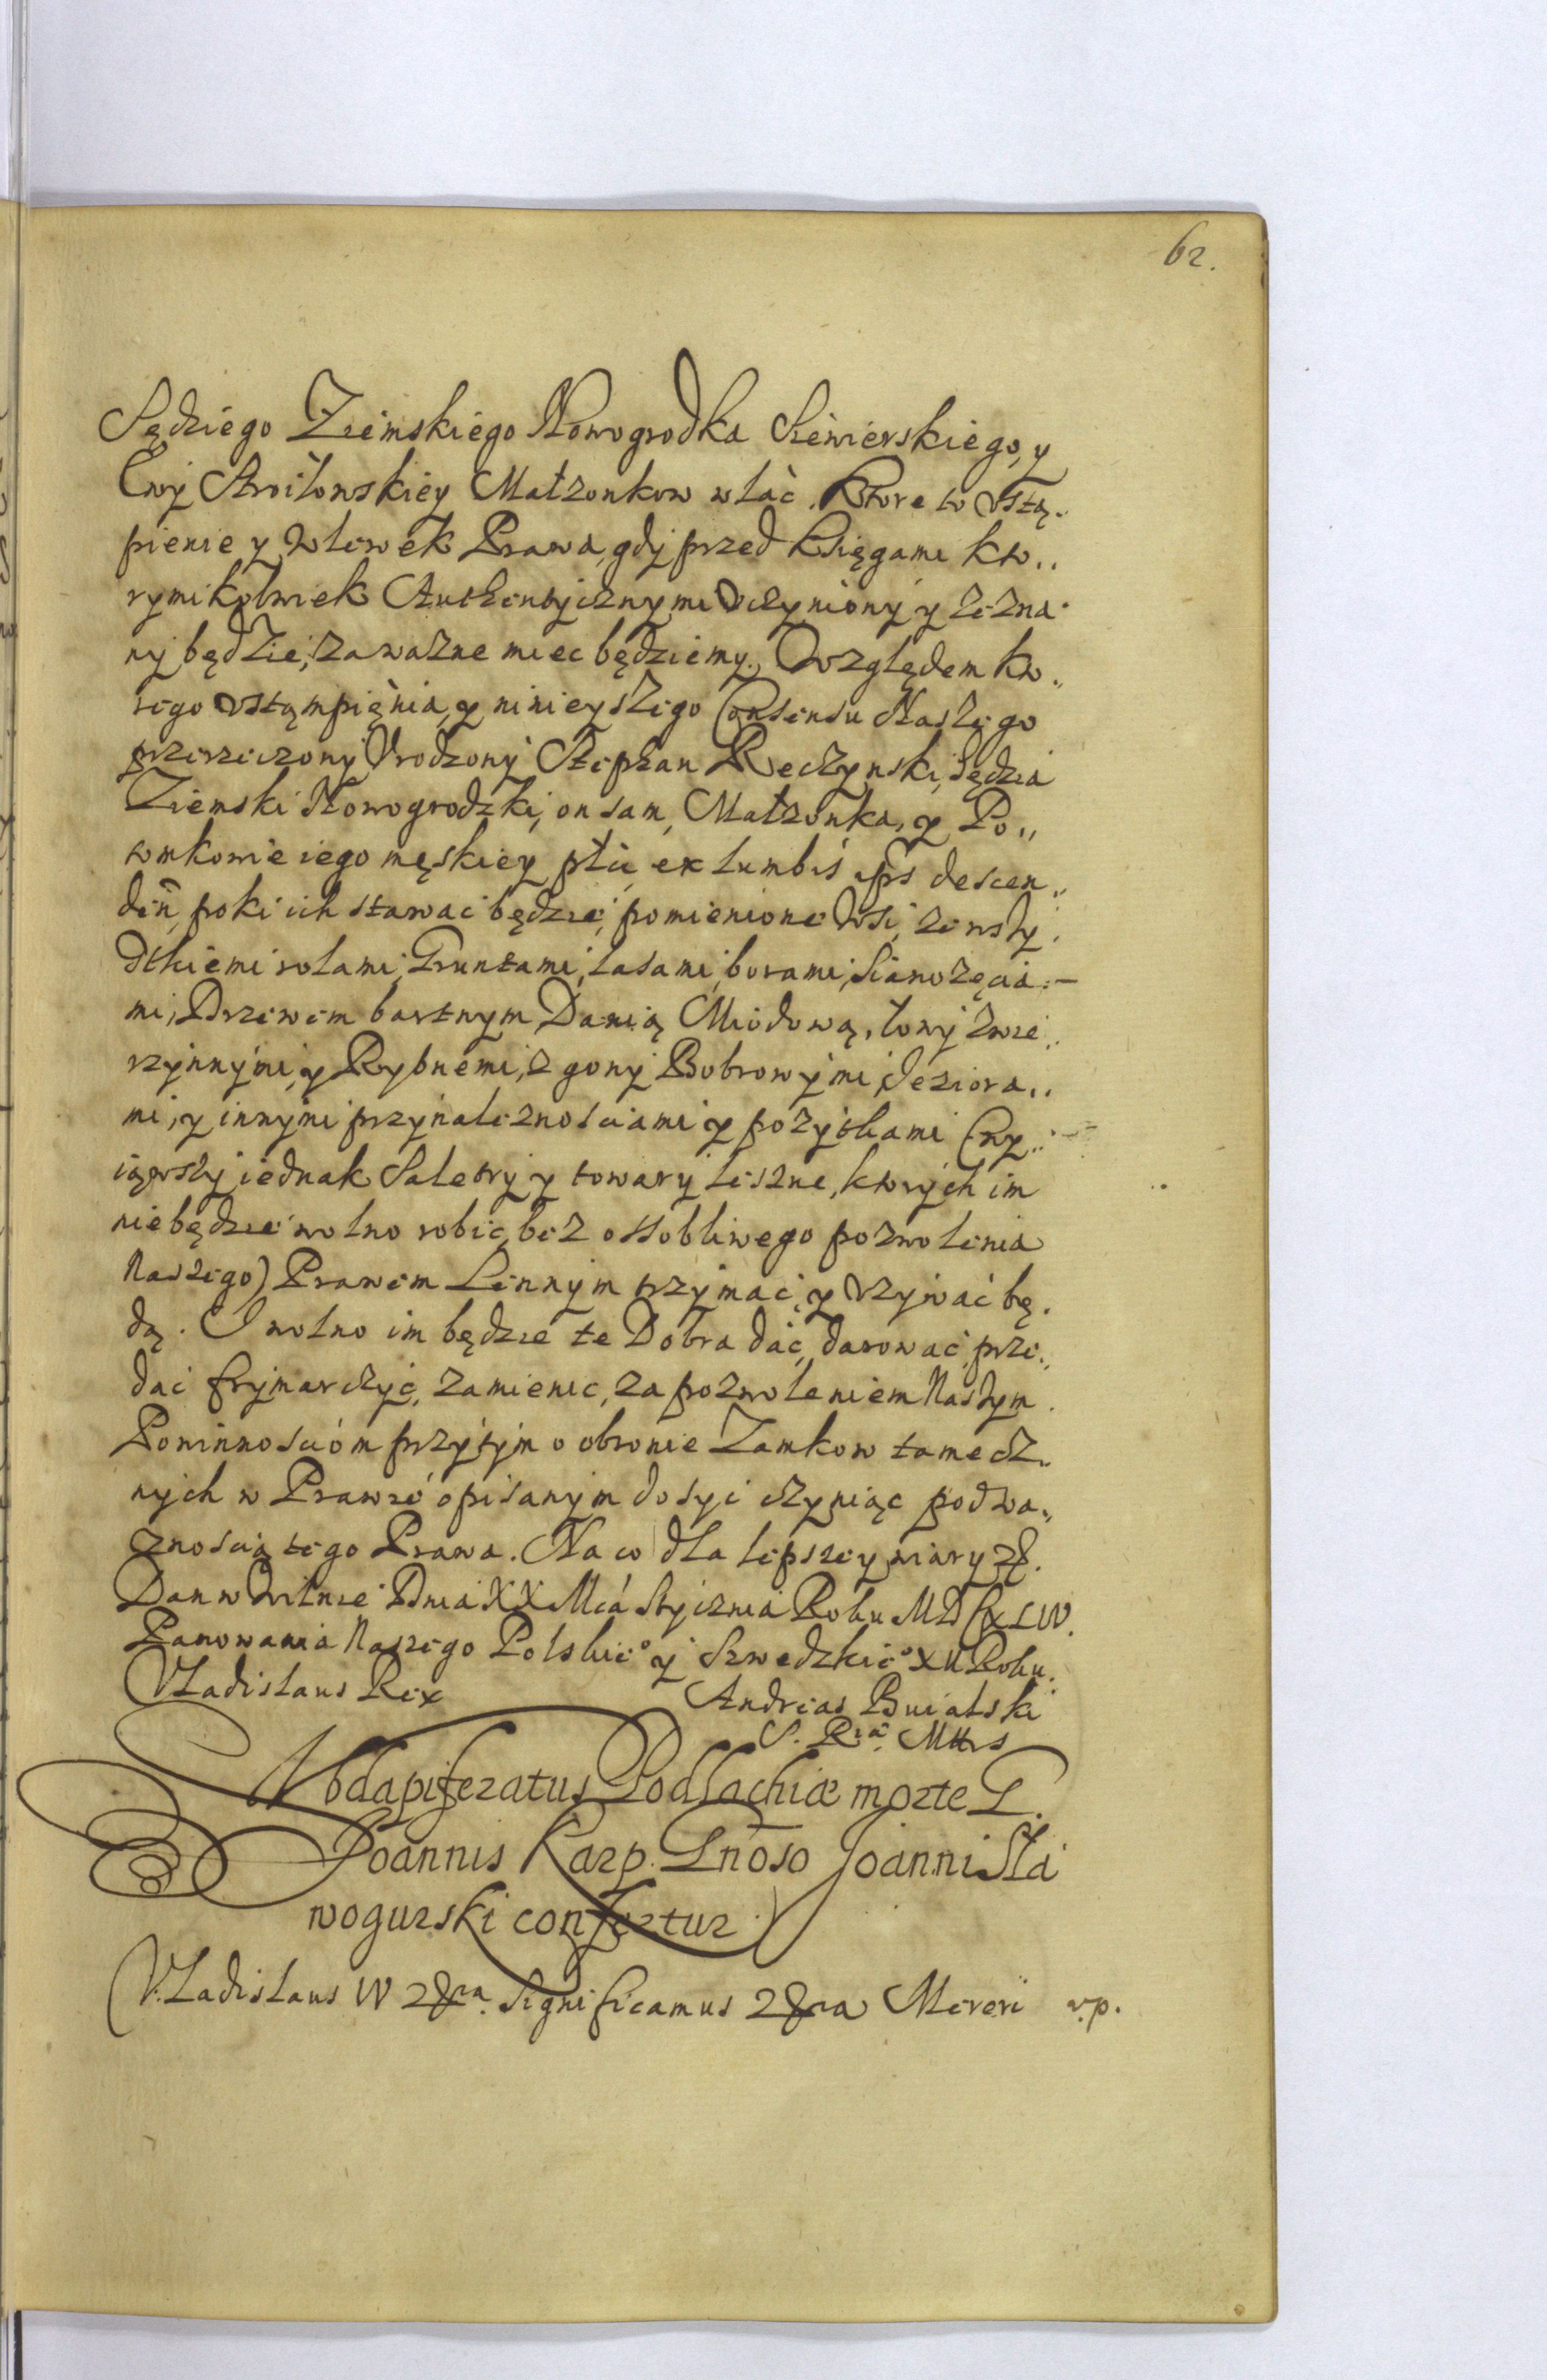 62.
Sędziego Ziemskiego Nowogrodka Siewierskiego, y
Ewy Stroiłowskiey Małzonkow wlac. Ktore to vstą..
pienie y wlewek Prawa, gdy przed Księgami kto..
rymikolwiek Authentycznymi vczyniony y zezna
ny będzie, za wazne miec będziemy. Względem kto..
rego vstąmpięnia, y ninieyszego Consensu Naszego
przerzeczony Vrodzony Stephan Reczynski, Sędzia
Ziemski Nowogrodzki, on sam, Małzonka, y Po,,
tomkowie iego męskiey płci, ex lumbis ips descen..
den, poki ich stawac będzie, pomienione Wsi, ze wszy.
stkiemi rolami, Gruntami, lasami, borami, Sianozęcia:-
mi, Drzewem bartnym Danią Miodową, łowy zwie..
rzynnymi, y Rybnemi, z gony Bobrowymi, Jeziora,,
mi, y innymi przynaleznosciami y pozytkami (wy..
iąwszy iednak Saletry y towary leszne, ktorych im
niebędzie wolno robic, bez ossobliwego pozwolenia
Naszego) Prawem Lennym trzymac, y vzywac bę.
dą. I wolno im będzie te Dobra dac, darowac, prze..
dac frymarczyc, zamienic, za pozwoleniem Naszym.
Powinnosciom przytym o obronie Zamkow tamecz..
nych w Prawie opisanym dosyc czyniąc pod wa..
znoscią tego Prawa. Na co dla lepszey wiary zę.
Dan w Wilnie Dnia XX Mca Stycznia Roku MDCXLIV.
Panowania Naszego Polskie° y Szwedzkie° XII Roku.
Vladislaus Rex Andreas Buialski
S. Ra. Mttis
Subdapiferatus Podlachiæ morte G.
Joannis Karp. Gnoso Joanni Sła
wogurski confertur
Vladislaus IV &ra. Significamus &ra Mereri v.p.